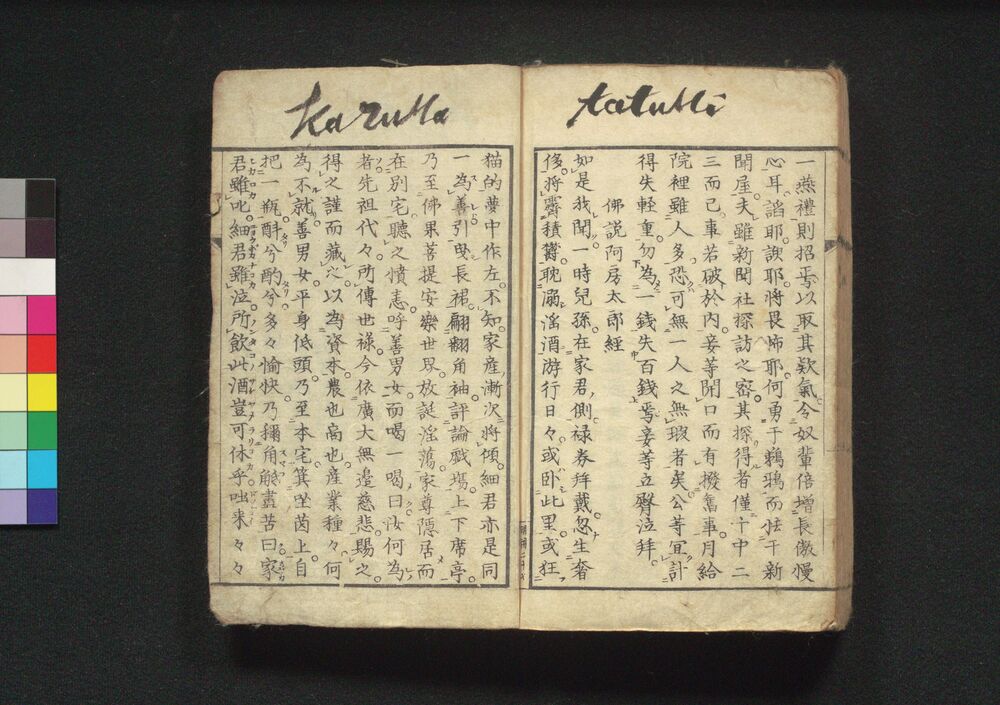 tatuMi
一燕禮則招焉以取其歎氣令奴輩倍增長傲慢
心耳謟耶諛耶將畏怖耶何勇于鵜鴉而怯于新
聞屋夫雖新聞社探訪之密其探得者僅十中二
三而已事若破於内妾等開口而有撥奮事月給
院裡雖人多恐可無一人之無瑕者矣公等宜計
得失輕重勿為一錢失百錢焉妾等立齊泣拜
佛説阿房太郎經
如是我聞一時兒孫在家君側禄券拜戴忽生奢
侈將齎積耽溺滛酒游行日々或卧此里或狂
KaruMa
猫的夢中作左不知家産漸次將傾細君亦是同
一為善引曳長裙翩翻角袖評論戯塲上下席亭
乃至佛果菩提安樂世界放誕淫蕩家尊隠居而
在別宅聽之憤恚呼善男女而喝一喝曰汝何為
者先祖代々所傳世禄今依廣大無邊慈悲賜之
得之謹而藏以為資本農也商也産業種々何
為不就善男女平身低頭乃至本宅箕坐茵上自
把一瓶酙兮酌兮多々愉快乃穪角觝盡苦曰家
君雖叱細君雖泣所飲此酒豈可休乎咄来々々